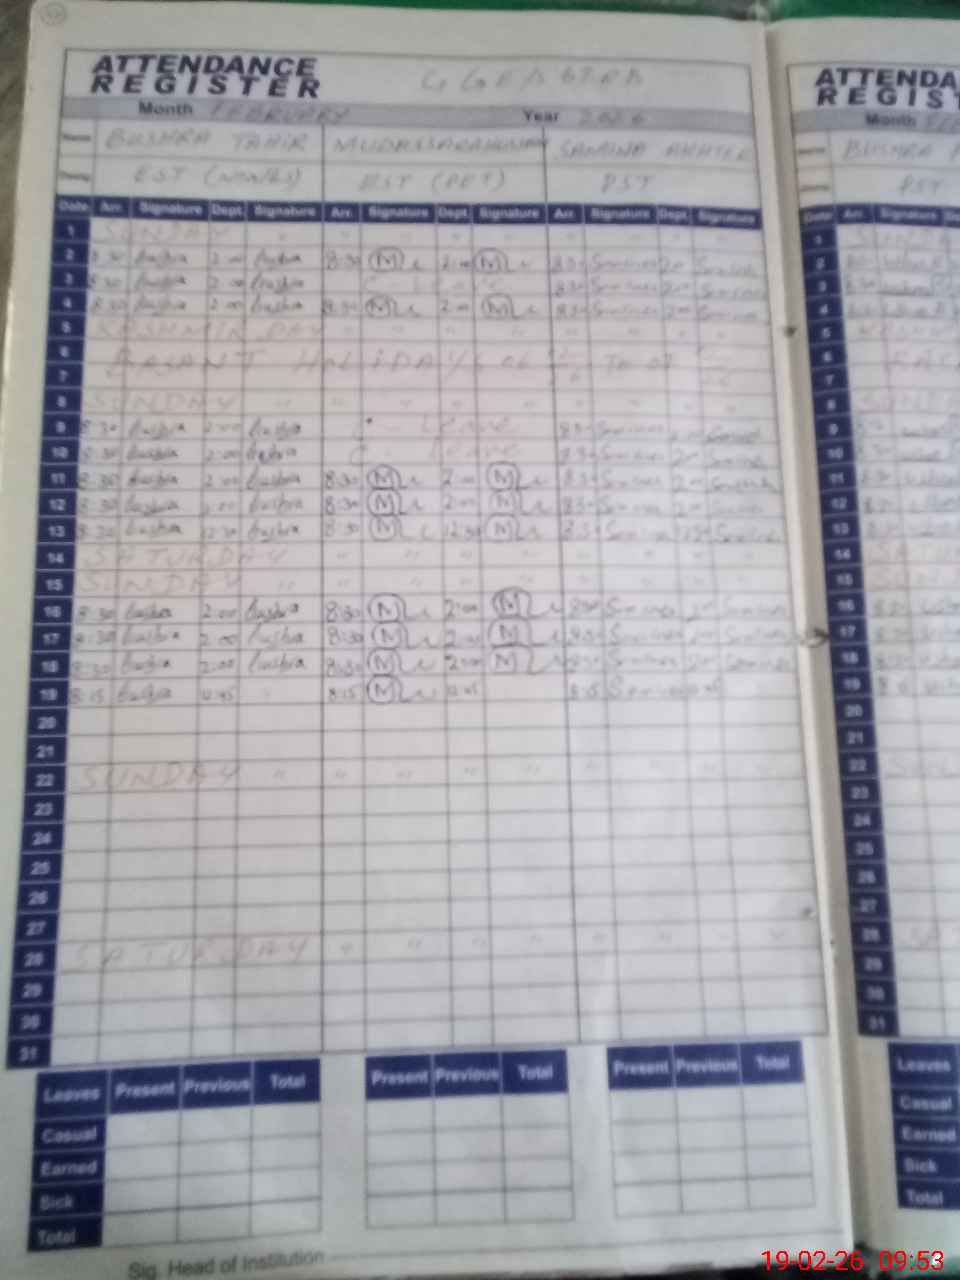 ATTENDANCE
REGISTER
Month FEBRUARY Year 2026
BUSHRA TAHIR
SAMINA AKHTER
EST
EST (PET)
PST
Date Arr. Signature Dept. Signature Arr. Signature Dept. Signature Arr. Signature Dept. Signature
1 SUNDAY " " " " "
2 8:30 Bushra 2:00 Bushra 8:30 M 2:00 M 8:30 Samina 2:00 Samina
3 8:30 Bushra 2:00 Bushra C - Leave 8:30 Samina 2:00 Samina
4 8:30 Bushra 2:00 Bushra 8:30 M 2:00 M 8:30 Samina 2:00 Samina
5 KASHMIR DAY " " " "
6 BASANT HOLIDAYS
7
8 SUNDAY " " " " "
9 8:30 Bushra 2:00 Bushra C - Leave 8:30 Samina 2:00 Samina
10 8:30 Bushra 2:00 Bushra C - Leave 8:30 Samina 2:00 Samina
11 8:30 Bushra 2:00 Bushra 8:30 M 2:00 M 8:30 Samina 2:00 Samina
12 8:30 Bushra 2:00 Bushra 8:30 M 2:00 M 8:30 Samina 2:00 Samina
13 8:30 Bushra 12:30 Bushra 8:30 M 12:30 M 8:30 Samina 12:30 Samina
14 SATURDAY " " " " "
15 SUNDAY " " " " "
16 8:30 Bushra 2:00 Bushra 8:30 M 2:00 M 8:30 Samina 2:00 Samina
17 8:30 Bushra 2:00 Bushra 8:30 M 2:00 M 8:30 Samina 2:00 Samina
18 8:30 Bushra 2:00 Bushra 8:30 M 2:00 M 8:30 Samina 2:00 Samina
19 8:15 Bushra 12:45 8:15 M 12:45 8:15 Samina 12:45
20
21
22 SUNDAY " " " " " " " " "
23
24
25
26
27
28 SATURDAY " " " " " " " "
29
30
31
Leaves Present Previous Total Present Previous Total Present Previous Total
Casual
Earned
Sick
Total
Sig. Head of Institution
ATTENDA
REGIST
Month
BUSHRA
PST
Date Arr. Signature
1
2
3
4
5
6
7
8
9
10
11
12
13
14
15
16
17
18
19
20
21
22
23
24
25
26
27
28
29
30
31
Leaves
Casual
Earned
Sick
Total
19-02-26 09:53